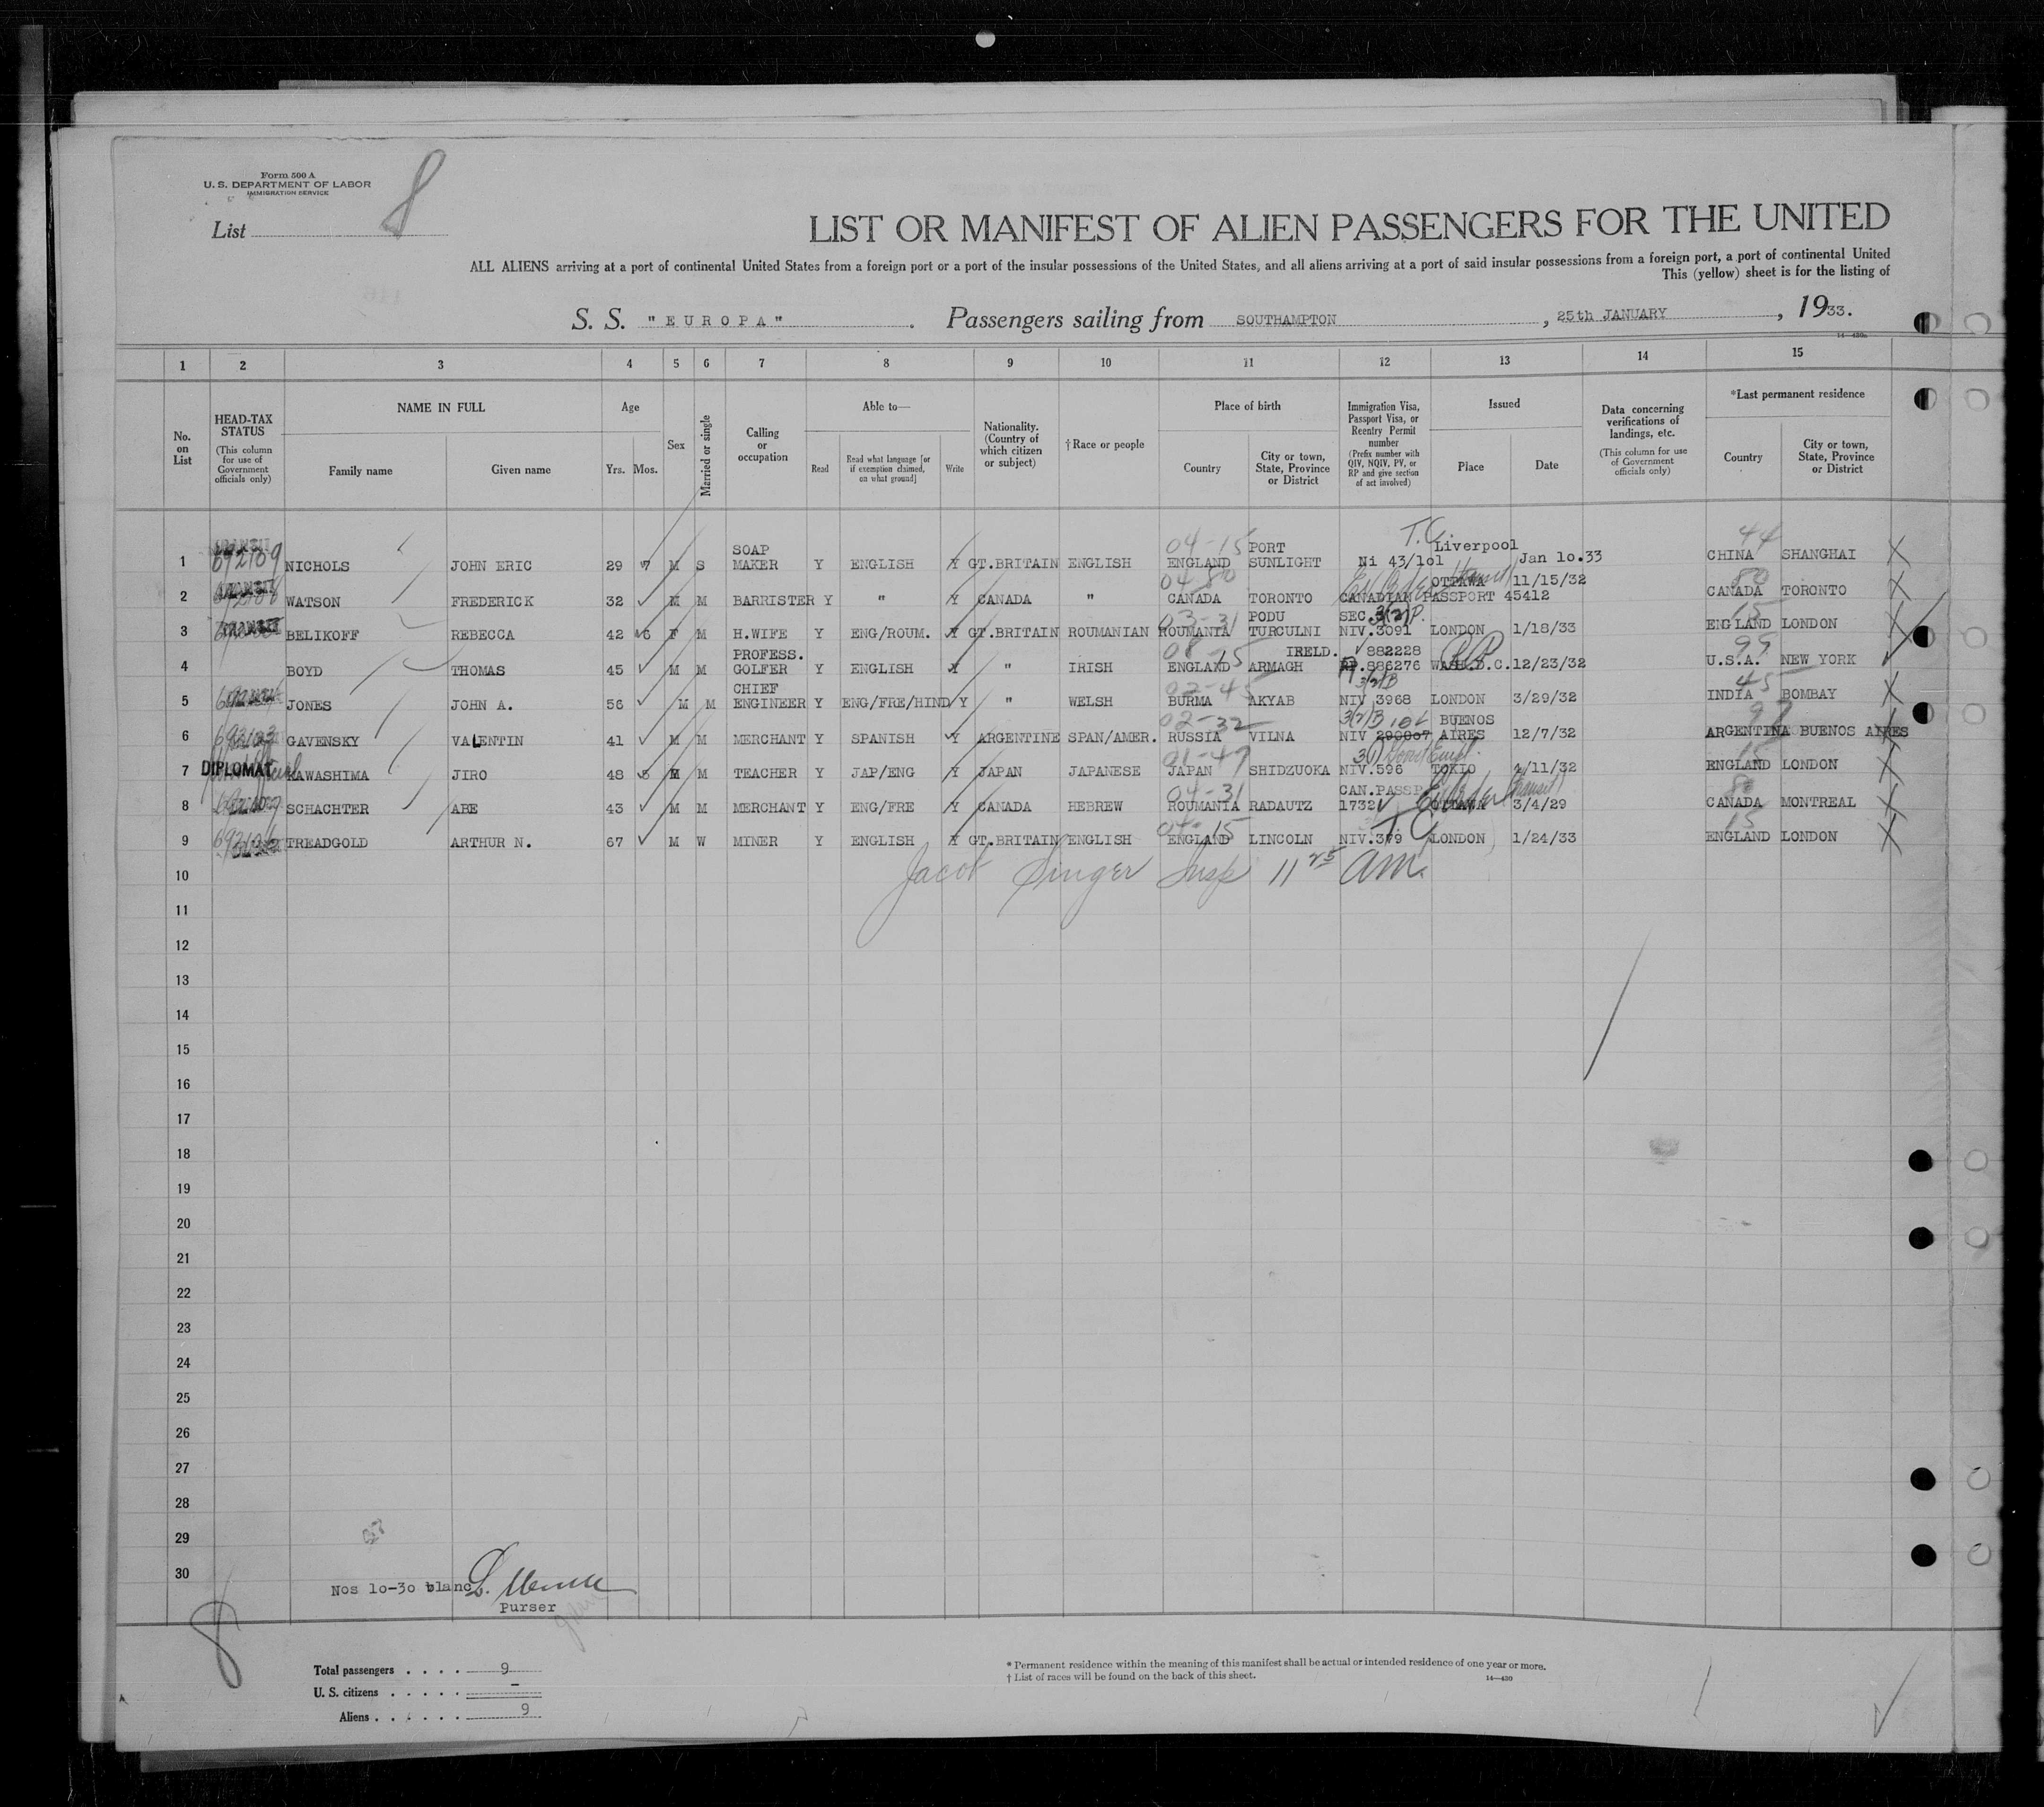 Form 500 A
U. S. DEPARTMENT OF LABOR
IMMIGRATION SERVICE
List 8
LIST OR MANIFEST OF ALIEN PASSENGERS FOR THE UNITED
ALL ALIENS arriving at a port of continental United States from a foreign port or a port of the insular possessions of the United States, and all aliens arriving at a port of said insular possessions from a foreign port, a port of continental United
This (yellow) sheet is for the listing of
S. S. "EUROPA" . Passengers sailing from SOUTHAMPTON , 25th JANUARY , 1933.
14—430a
1 2 3 4 5 6 7 8 9 10 11 12 13 14 15
No. on List
HEAD-TAX STATUS (This column for use of Government officials only)
NAME IN FULL Family name Given name
Age Yrs. Mos.
Sex
Married or single
Calling or occupation
Able to— Read Read what language [or if exemption claimed, on what ground] Write
Nationality. (Country of which citizen or subject)
†Race or people
Place of birth Country City or town, State, Province or District
Immigration Visa, Passport Visa, or Reentry Permit number (Prefix number with QIV, NQIV, PV, or RP and give section of act involved)
Issued Place Date
Data concerning verifications of landings, etc. (This column for use of Government officials only)
*Last permanent residence Country City or town, State, Province or District
TRANSIT SOAP 04-15 PORT T.C. Liverpool 44
1 692109 NICHOLS JOHN ERIC 29 7 M S MAKER Y ENGLISH Y GT.BRITAIN ENGLISH ENGLAND SUNLIGHT Ni 43/1o1 Jan 1o.33 CHINA SHANGHAI X
TRANSIT 04-80 OTTAWA transit 11/15/32 80
2 WATSON FREDERICK 32 M M BARRISTER Y " Y CANADA " CANADA TORONTO CANADIAN PASSPORT 45412 CANADA TORONTO X
TRANSIT 03-31 PODU SEC. 3(2)P. 15
3 BELIKOFF REBECCA 42 6 F M H.WIFE Y ENG/ROUM. Y GT.BRITAIN ROUMANIAN ROUMANIA TURCULNI NIV.3091 LONDON 1/18/33 ENGLAND LONDON X
PROFESS. 08-15 IRELD. 882228 RP 99
4 BOYD THOMAS 45 M M GOLFER Y ENGLISH Y " IRISH ENGLAND ARMAGH RP.886276 WASH.D.C. 12/23/32 U.S.A. NEW YORK
CHIEF 02-45 3/2/B 45
5 JONES JOHN A. 56 M M ENGINEER Y ENG/FRE/HIND Y " WELSH BURMA AKYAB NIV 3968 LONDON 3/29/32 INDIA BOMBAY X
02-32 3(2)B BUENOS
6 692103 GAVENSKY VALENTIN 41 M M MERCHANT Y SPANISH Y ARGENTINE SPAN/AMER. RUSSIA VILNA NIV 290807 AIRES 12/7/32 ARGENTINA BUENOS AIRES
01-49 3(1) Govt Empl. 15
7 DIPLOMAT KAWASHIMA JIRO 48 5 M M TEACHER Y JAP/ENG Y JAPAN JAPANESE JAPAN SHIDZUOKA NIV.596 TOKIO 4/11/32 ENGLAND LONDON X
04-31 CAN.PASSP transit 80
8 SCHACHTER ABE 43 M M MERCHANT Y ENG/FRE Y CANADA HEBREW ROUMANIA RADAUTZ 1732 OTTAWA 3/4/29 CANADA MONTREAL X
04-15 T.C. 15
9 TREADGOLD ARTHUR N. 67 M W MINER Y ENGLISH Y GT.BRITAIN ENGLISH ENGLAND LINCOLN NIV.379 LONDON 1/24/33 ENGLAND LONDON X
10 Jacob Singer Insp 11 25 am.
11
12
13
14
15
16
17
18
19
20
21
22
23
24
25
26
27
28
29
30
Nos 1o-3o blanc
Purser
8
Total passengers . . . . 9
U. S. citizens . . . . . –
Aliens . . . . . . 9
* Permanent residence within the meaning of this manifest shall be actual or intended residence of one year or more.
† List of races will be found on the back of this sheet.
14—430